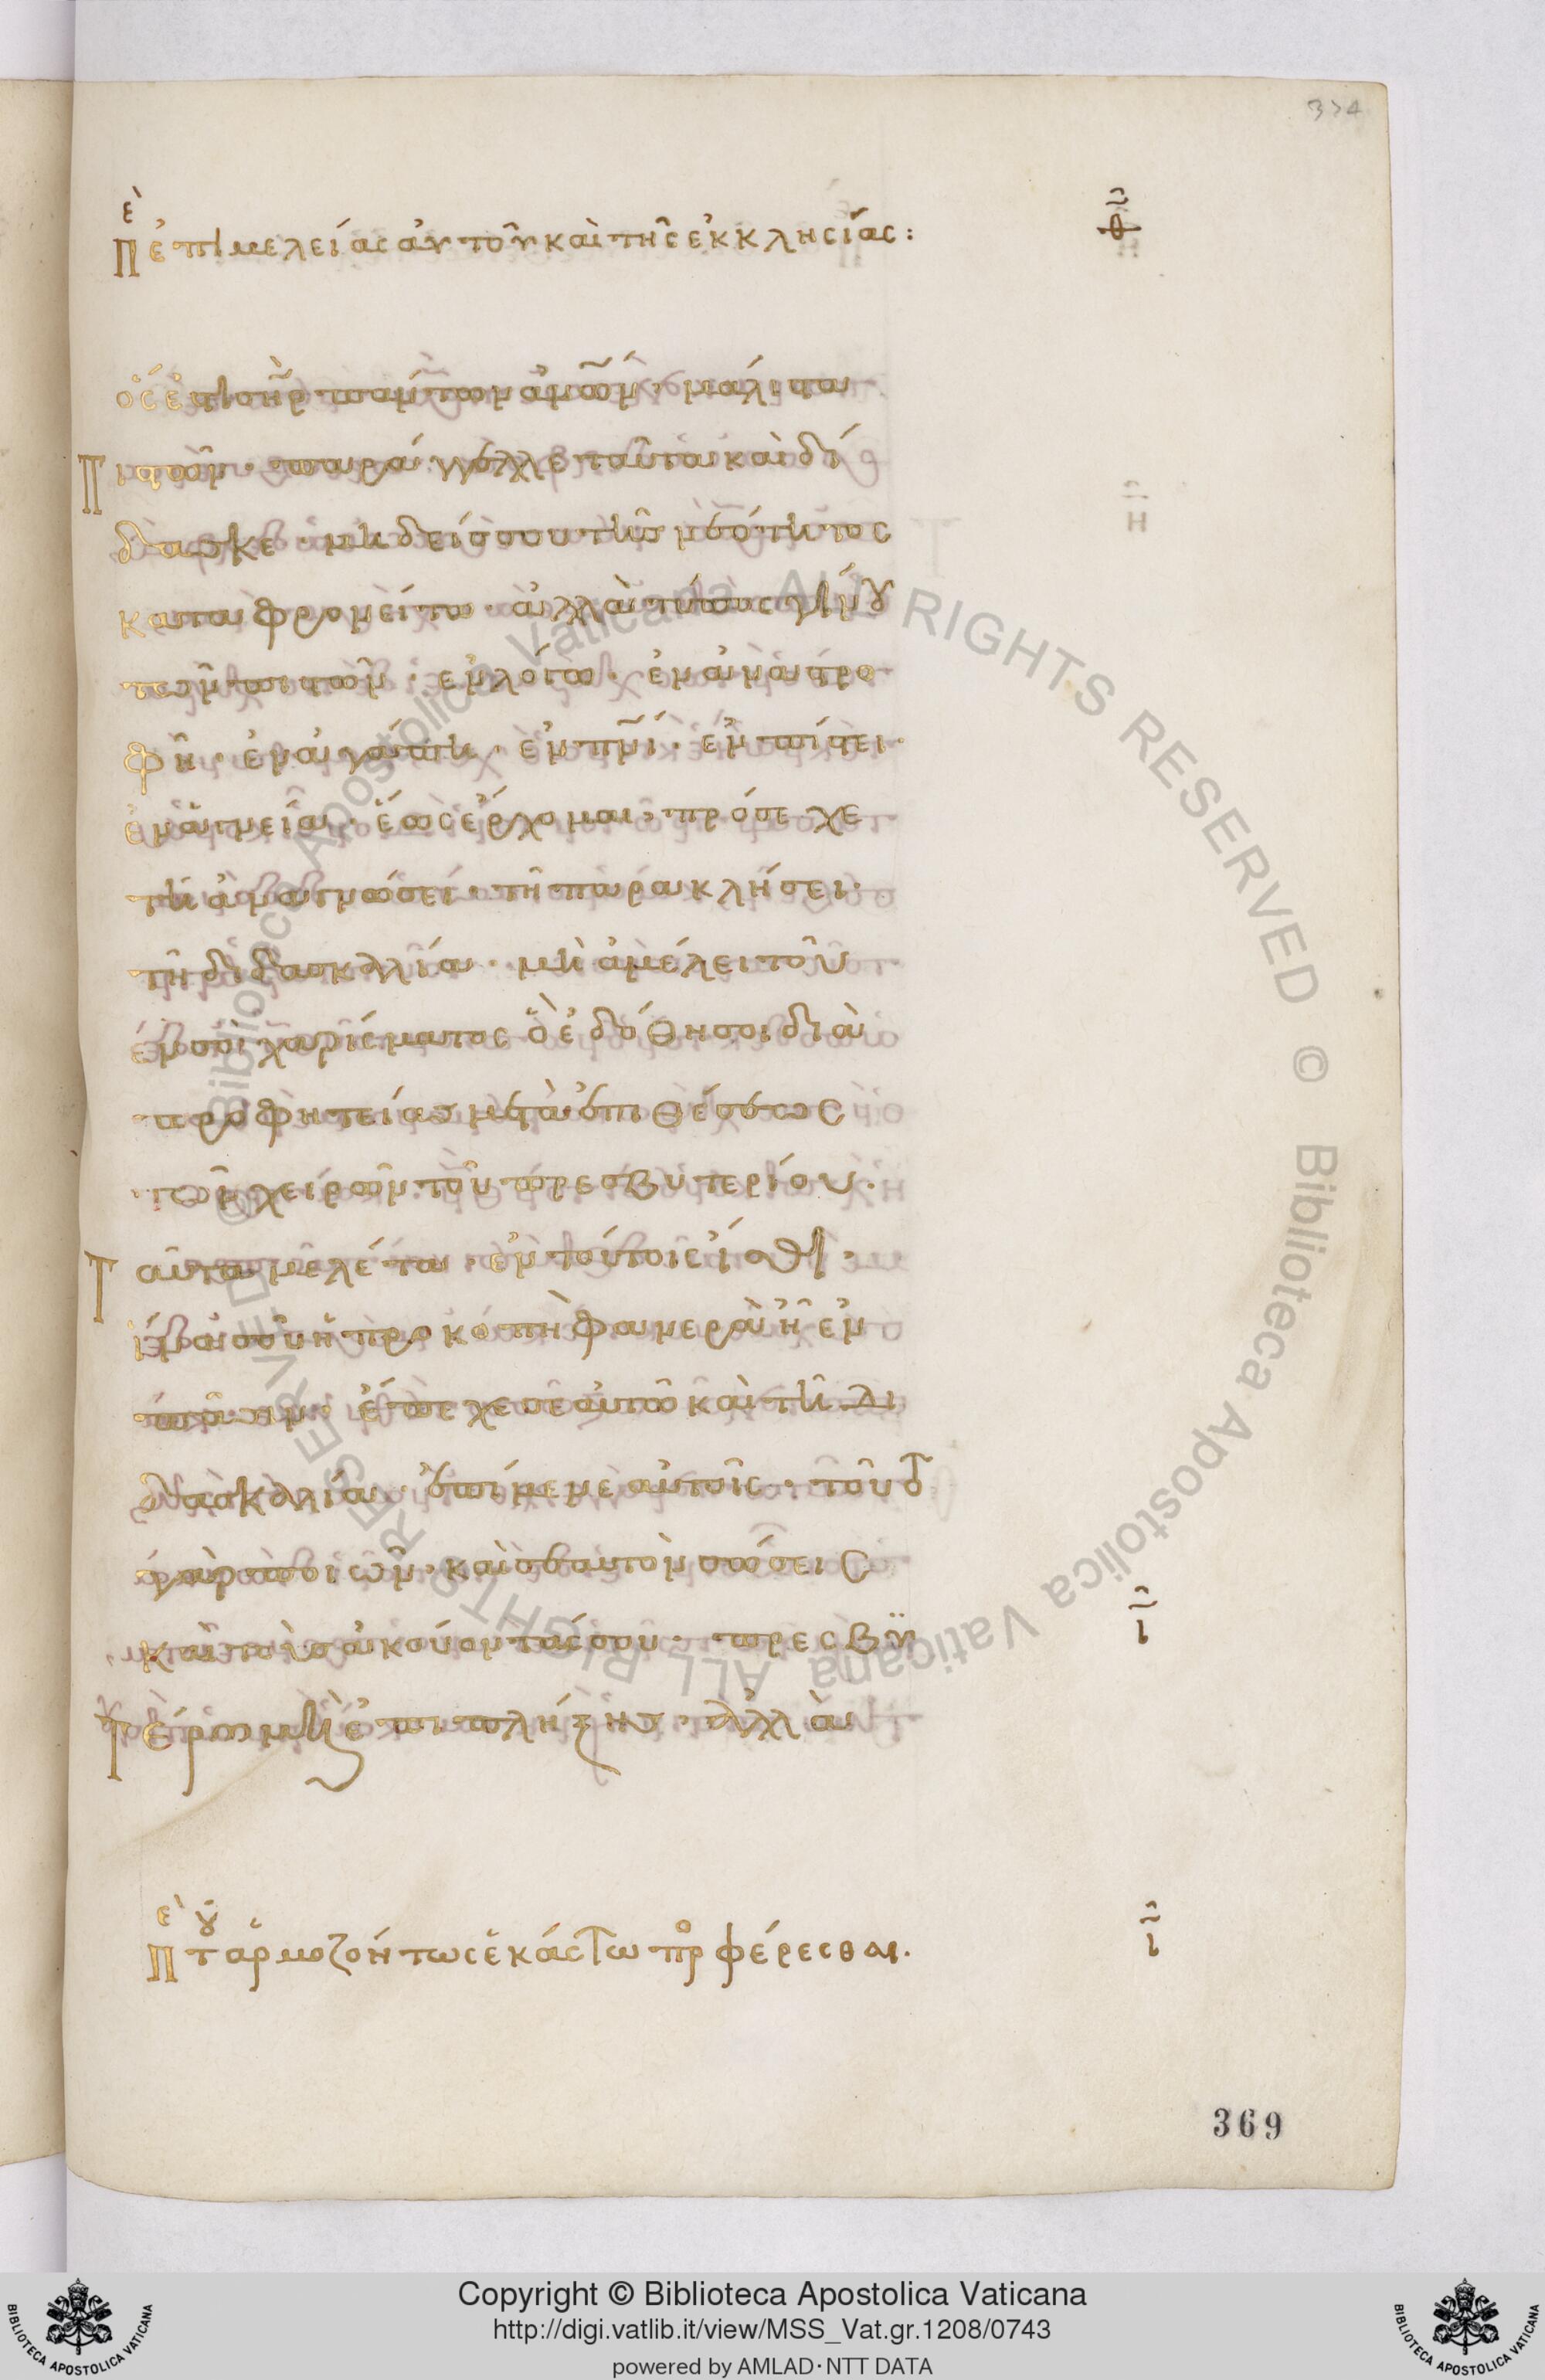 374
Πὲ ἐπιμελείας αὐτοῦ καὶ τῆς ἐκκλησίας:
θ
ὅς ἐστι σηρ πάντων ανων· μάλιστα
πιστῶν· παράγγελλε ταῦτα καὶ δί
δασκε· μηδείς σου τῆς νεότητος
καταφρονείτω· ἀλλὰ τύπος γίνου
τῶν πιστῶν· ἐν λόγω· ἐν ἀναστρο
φῆ· ἐν ἀγάπη· ἐν πνι· ἐν πίστει·
ἐν ἁγνεία· ἕως ἔρχομαι· πρόσεχε
τῆ ἀναγνώσει· τῆ παρακλήσει·
τῆ διδασκαλία· μὴ ἀμέλει τοῦ
ἐν σοὶ χαρίσματος ὃ ἐδόθη σοι διὰ
προφητείας μετὰ ἐπιθέσεως
τῶν χειρῶν τοῦ πρεσβυτερίου·
Ταῦτα μελέτα· ἐν τούτοις ἴσθι·
ἵνα σοῦ ἡ προκοπὴ φανερὰ ἦ ἐν
πᾶσιν· ἔπεχε σεαυτῶ καὶ τῆ δι
δασκαλία· ἐπίμενε αὐτοῖς· τοῦτο
γὰρ ποιῶν· καὶ σεαυτὸν σώσεις
καὶ τοὺς ἀκούοντάς σου· πρεσβυ
τέρω μὴ ἐπιπλήξης· ἀλλὰ
ι
Πὲ τοῦ ἁρμοζόντως ἑκάστω προσφέρεσθαι.
ι
369
© Biblioteca Apostolica Vaticana ALL RIGHTS RESERVED © Biblioteca Apostolica Vaticana ALL RIGHTS RESERVED
BIBLIOTECA APOSTOLICA VATICANA
Copyright © Biblioteca Apostolica Vaticana
http://digi.vatlib.it/view/MSS_Vat.gr.1208/0743
powered by AMLAD·NTT DATA
BIBLIOTECA APOSTOLICA VATICANA